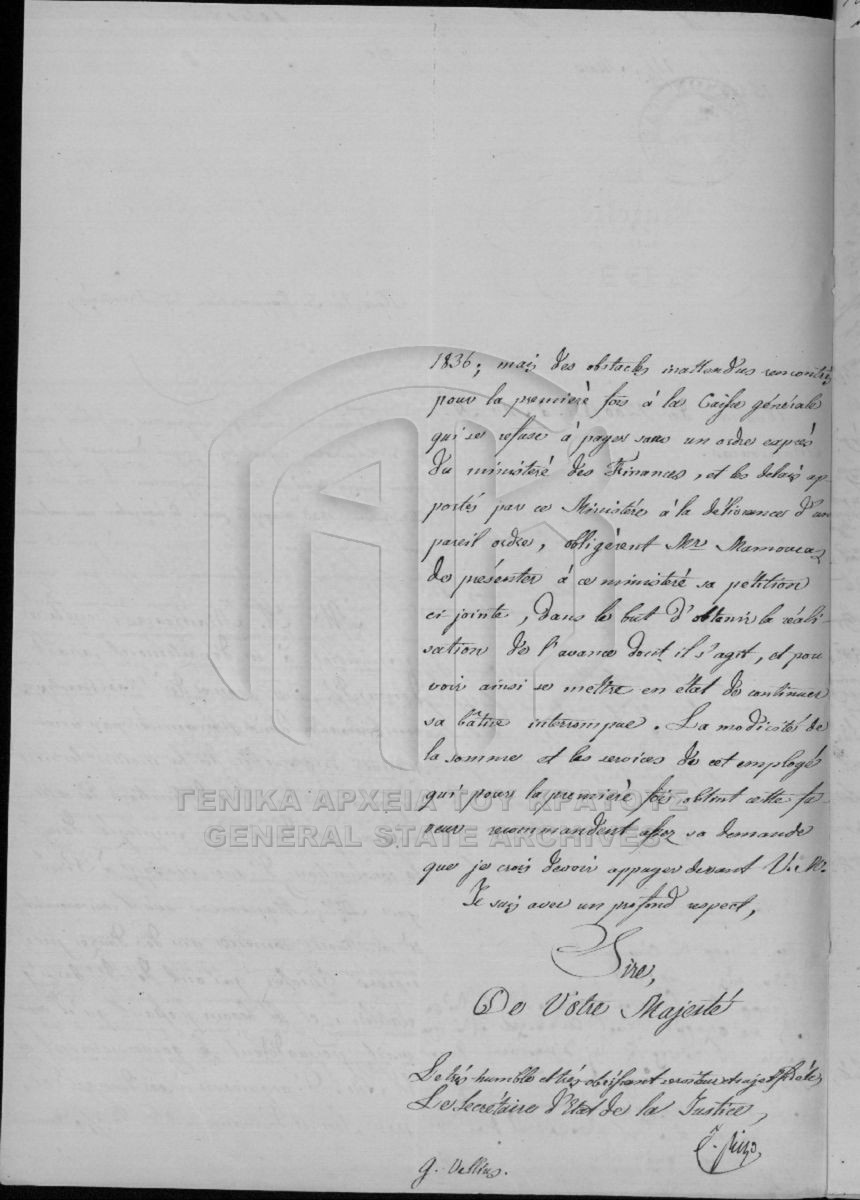 1836; mais des obstacles inattendus rencontrés
pour la premiere fois à la Caisse générale
qui se refuse à payer sans un ordre exprès
du ministère des Finances, et les delais ap-
portés par ce Ministère à la délivrance d'un
pareil ordre, obligèrent Mr Mamoucas
de présenter à ce ministère sa petition
ci jointe, dans le but d'obtenir la réali-
sation de l'avance dont il s'agit, et pou-
voir ainsi se mettre en etat de continuer
sa bâtise interrompue. La modicité de
la somme et les services de cet employé
qui pour la premiere fois obtint cette fa-
veur recommandent assez sa demande
que je crois devoir appuyer devant V. M.
Je suis avec un profond respect,
Sire,
De Votre Majesté
Le très-humble et très obéissant serviteur et sujet fidèle
Le Secrétaire d'Etat de la Justice,
G. Vellius.
ΓΕΝΙΚΑ ΑΡΧΕΙΑ ΤΟΥ ΚΡΑΤΟΥΣ
GENERAL STATE ARCHIVES